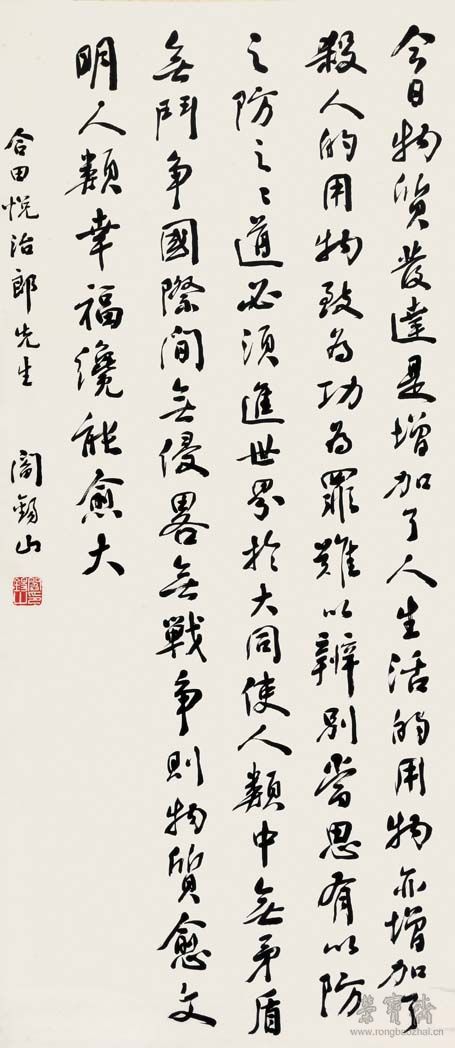 今日物質發達是增加了人生活的用物亦增加了
殺人的用物致為功為罪難以辨別當思有以防
之防之之道必須進世界於大同使人類中無矛盾
無鬥爭國際間無侵畧無戰爭則物質愈文
明人類幸福纔能愈大
合田悅治郎先生 閻錫山
閻錫山印
榮寶齋
www.rongbaozhai.cn